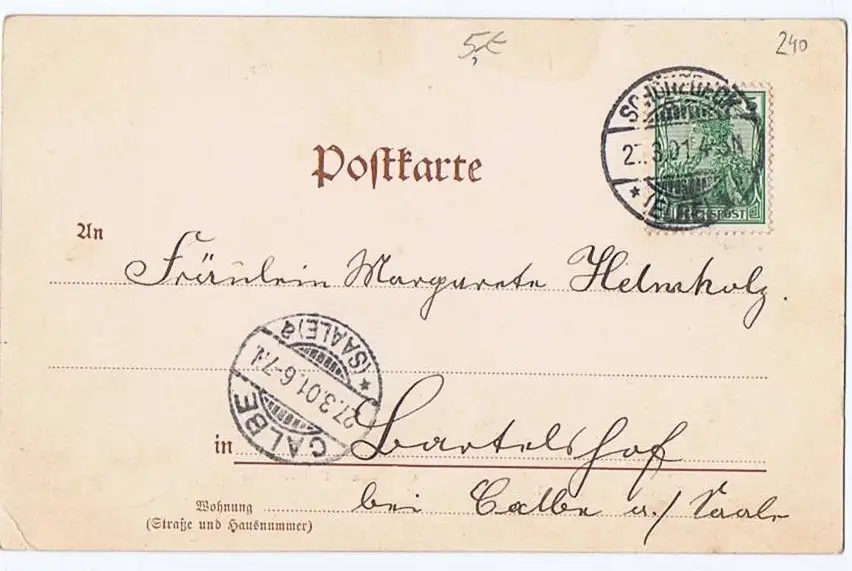 5,-
240
SCHÖNEBECK
5
27.3.01. 4-5N
* (ELBE)
REICHSPOST
Postkarte
An
Fräulein Margarete Helmholz.
CALBE
27.3.01. 6-7N.
* (SAALE) a
in Bartelshof
bei Calbe a./Saale
Wohnung
(Straße und Hausnummer)